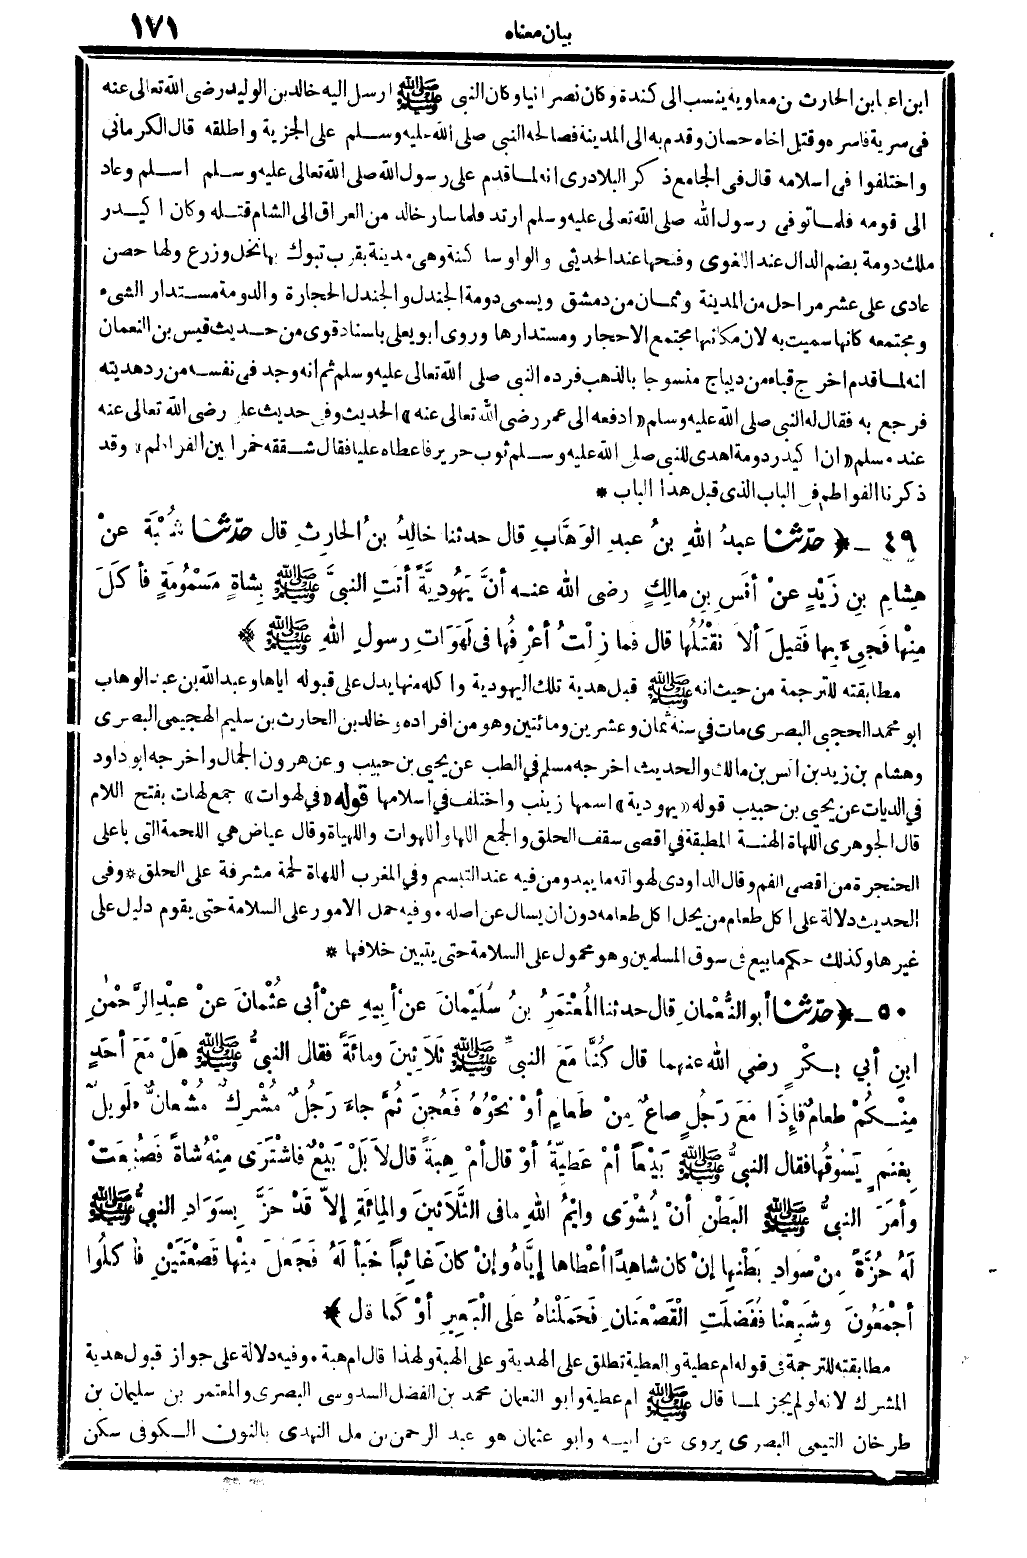 بيان معناه ١٧١
ابن اعبا بن الحارث بن معاوية ينسب الى كندة وكان نصرانيا وكان النبي ﷺ ارسل اليه خالد بن الوليد رضى الله تعالى عنه
فى سرية فاسره وقتل اخاه حسان وقدم به الى المدينة فصالحه النبى صلى الله عليه وسلم على الجزية واطلقه قال الكرمانى
واختلفوا فى اسلامه قال فى الجامع ذكر البلادرى انه لما قدم على رسول الله صلى الله تعالى عليه وسلم اسلم وعاد
الى قومه فلما توفى رسول الله صلى الله تعالى عليه وسلم ارتد فلما سار خالد من العراق الى الشام قتله وكان اكيدر
ملك دومة بضم الدال عند اللغوى وفتحها عند الحديثى والواو ساكنة وهى مدينة بقرب تبوك بها نخل وزرع ولها حصن
عادى على عشر مراحل من المدينة وثمان من دمشق ويسمى دومة الجندل والجندل الحجارة والدومة مستدار الشىء
ومجتمعه كانها سميت به لان مكانها مجتمع الاحجار ومستدارها وروى ابو يعلى باسناد قوى من حديث قيس بن النعمان
انه لما قدم اخرج قباء من ديباج منسوجا بالذهب فرده النبى صلى الله تعالى عليه وسلم ثم انه وجد فى نفسه من رد هديته
فرجع به فقال له النبى صلى الله عليه وسلم «ادفعه الى عمر رضى الله تعالى عنه» الحديث وفى حديث على رضى الله تعالى عنه
عند مسلم «ان اكيدر دومة اهدى للنبى صلى الله عليه وسلم ثوب حرير فاعطاه عليا فقال شققه خمرا بين الفواطم» وقد
ذكرنا الفواطم فى الباب الذى قبل هذا الباب *
٤٩ - ﴿ حَدَّثَنَا عبدُ اللهِ بنُ عبدِ الوَهَّابِ قال حدثنا خالِدُ بنُ الحارِثِ قال حَدَّثَنَا شُعْبَةُ عنْ
هِشامِ بنِ زَيْدٍ عنْ أنَسِ بنِ مالِكٍ رضى الله عنه أنَّ يَهُودِيَّةً أتَتِ النبىَّ ﷺ بِشاةٍ مَسْمُومَةٍ فأكَلَ
مِنْها فَجِىءَ بِها فَقِيلَ ألاَ نَقْتُلُها قال فَما زِلْتُ أعْرِفُها فى لَهَوَاتِ رسولِ اللهِ ﷺ ﴾
مطابقته للترجمة من حيث انه ﷺ قبل هدية تلك اليهودية واكله منها يدل على قبوله اياها وعبد الله بن عبد الوهاب
ابو محمد الحجبى البصرى مات فى سنة ثمان وعشرين ومائتين وهو من افراده وخالد بن الحارث بن سليم الهجيمى البصرى
وهشام بن زيد بن انس بن مالك والحديث اخرجه مسلم فى الطب عن يحيى بن حبيب وعن هرون الجمال واخرجه ابو داود
فى الديات عن يحيى بن حبيب قوله «يهودية» اسمها زينب واختلف فى اسلامها قوله «فى لهوات» جمع لهات بفتح اللام
قال الجوهرى اللهاة الهنة المطبقة فى اقصى سقف الحلق والجمع اللها واللهوات واللهياة وقال عياض هى اللحمة التى باعلى
الحنجرة من اقصى الفم وقال الداودى لهواته ما يبدو من فيه عند التبسم وفى المغرب اللهاة لحمة مشرفة على الحلق * وفى
الحديث دلالة على اكل طعام من يحل اكل طعامه دون ان يسال عن اصله . وفيه حمل الامور على السلامة حتى يقوم دليل على
غيرها وكذلك حكم ما بيع فى سوق المسلمين وهو محمول على السلامة حتى يتبين خلافها *
٥٠ - ﴿ حَدَّثَنَا أبو النُّعْمانِ قال حدثنا المُعْتَمِرُ بنُ سُلَيْمانَ عنْ أبِيهِ عنْ أبى عُثْمانَ عنْ عبْدِ الرَّحْمٰنِ
ابنِ أبي بكْرٍ رضي الله عنهما قال كُنَّا مَعَ النبىِّ ﷺ ثَلاَثِينَ ومِائَةً فقال النبىُّ ﷺ هَلْ مَعَ أحَدٍ
مِنْكُمْ طعامٌ فإذَا مَعَ رَجُلٍ صاعٌ مِنْ طَعامٍ أوْ نَحْوُهُ فَعُجِنَ ثُمَّ جاءَ رَجُلٌ مُشْرِكٌ مُشْعانٌّ طَوِيلٌ
بِغَنَمٍ يَسُوقُها فقال النبىُّ ﷺ بَيْعاً أمْ عَطِيَّةً أوْ قال أمْ هِبَةً قال لاَ بَلْ بَيْعٌ فاشْتَرَى مِنْهُ شاةً فَصُنِعَتْ
وأمَرَ النبىُّ ﷺ بِسَوَادِ البَطْنِ أنْ يُشْوَى وايْمُ اللهِ ما فى الثَّلاَثِينَ والمِائَةِ إلاَّ قَدْ حَزَّ النبىُّ ﷺ
لَهُ حُزَّةً مِنْ سَوَادِ بَطْنِها إنْ كان شاهِدًا أعْطاها إيَّاهُ وإنْ كانَ غائِباً خَبَأَ لهُ فَجَعَلَ مِنْها قَصْعَتَيْنِ فأكلُوا
أجْمَعُونَ وشَبِعْنا فَفَضَلَتِ القَصْعَتانِ فَحَمَلْناهُ على البَعِيرِ أوْ كَما قال ﴾
مطابقته للترجمة فى قوله ام عطية والعطية تطلق على الهدية وعلى الهبة ولهذا قال ام هبة . وفيه دلالة على جواز قبول هدية
المشرك لانه لو لم يجز لما قال ﷺ ام عطية وابو النعمان محمد بن الفضل السدوسى البصرى والمعتمر بن سليمان بن
طرخان التيمى البصرى يروى عن ابيه وابو عثمان هو عبد الرحمن بن مل النهدى بالنون الكوفى سكن